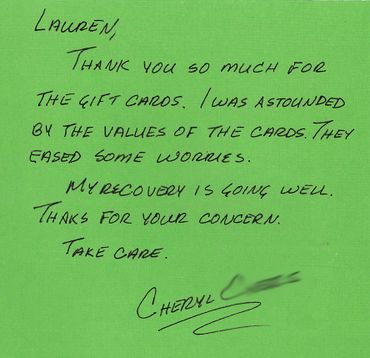 LAUREN,
THANK YOU SO MUCH FOR
THE GIFT CARDS. I WAS ASTOUNDED
BY THE VALUES OF THE CARDS. THEY
EASED SOME WORRIES.
MY RECOVERY IS GOING WELL.
THAKS FOR YOUR CONCERN.
TAKE CARE.
CHERYL